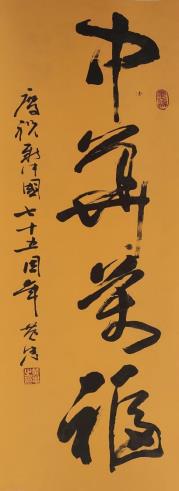 中华万福
庆祝新中國七十五周年